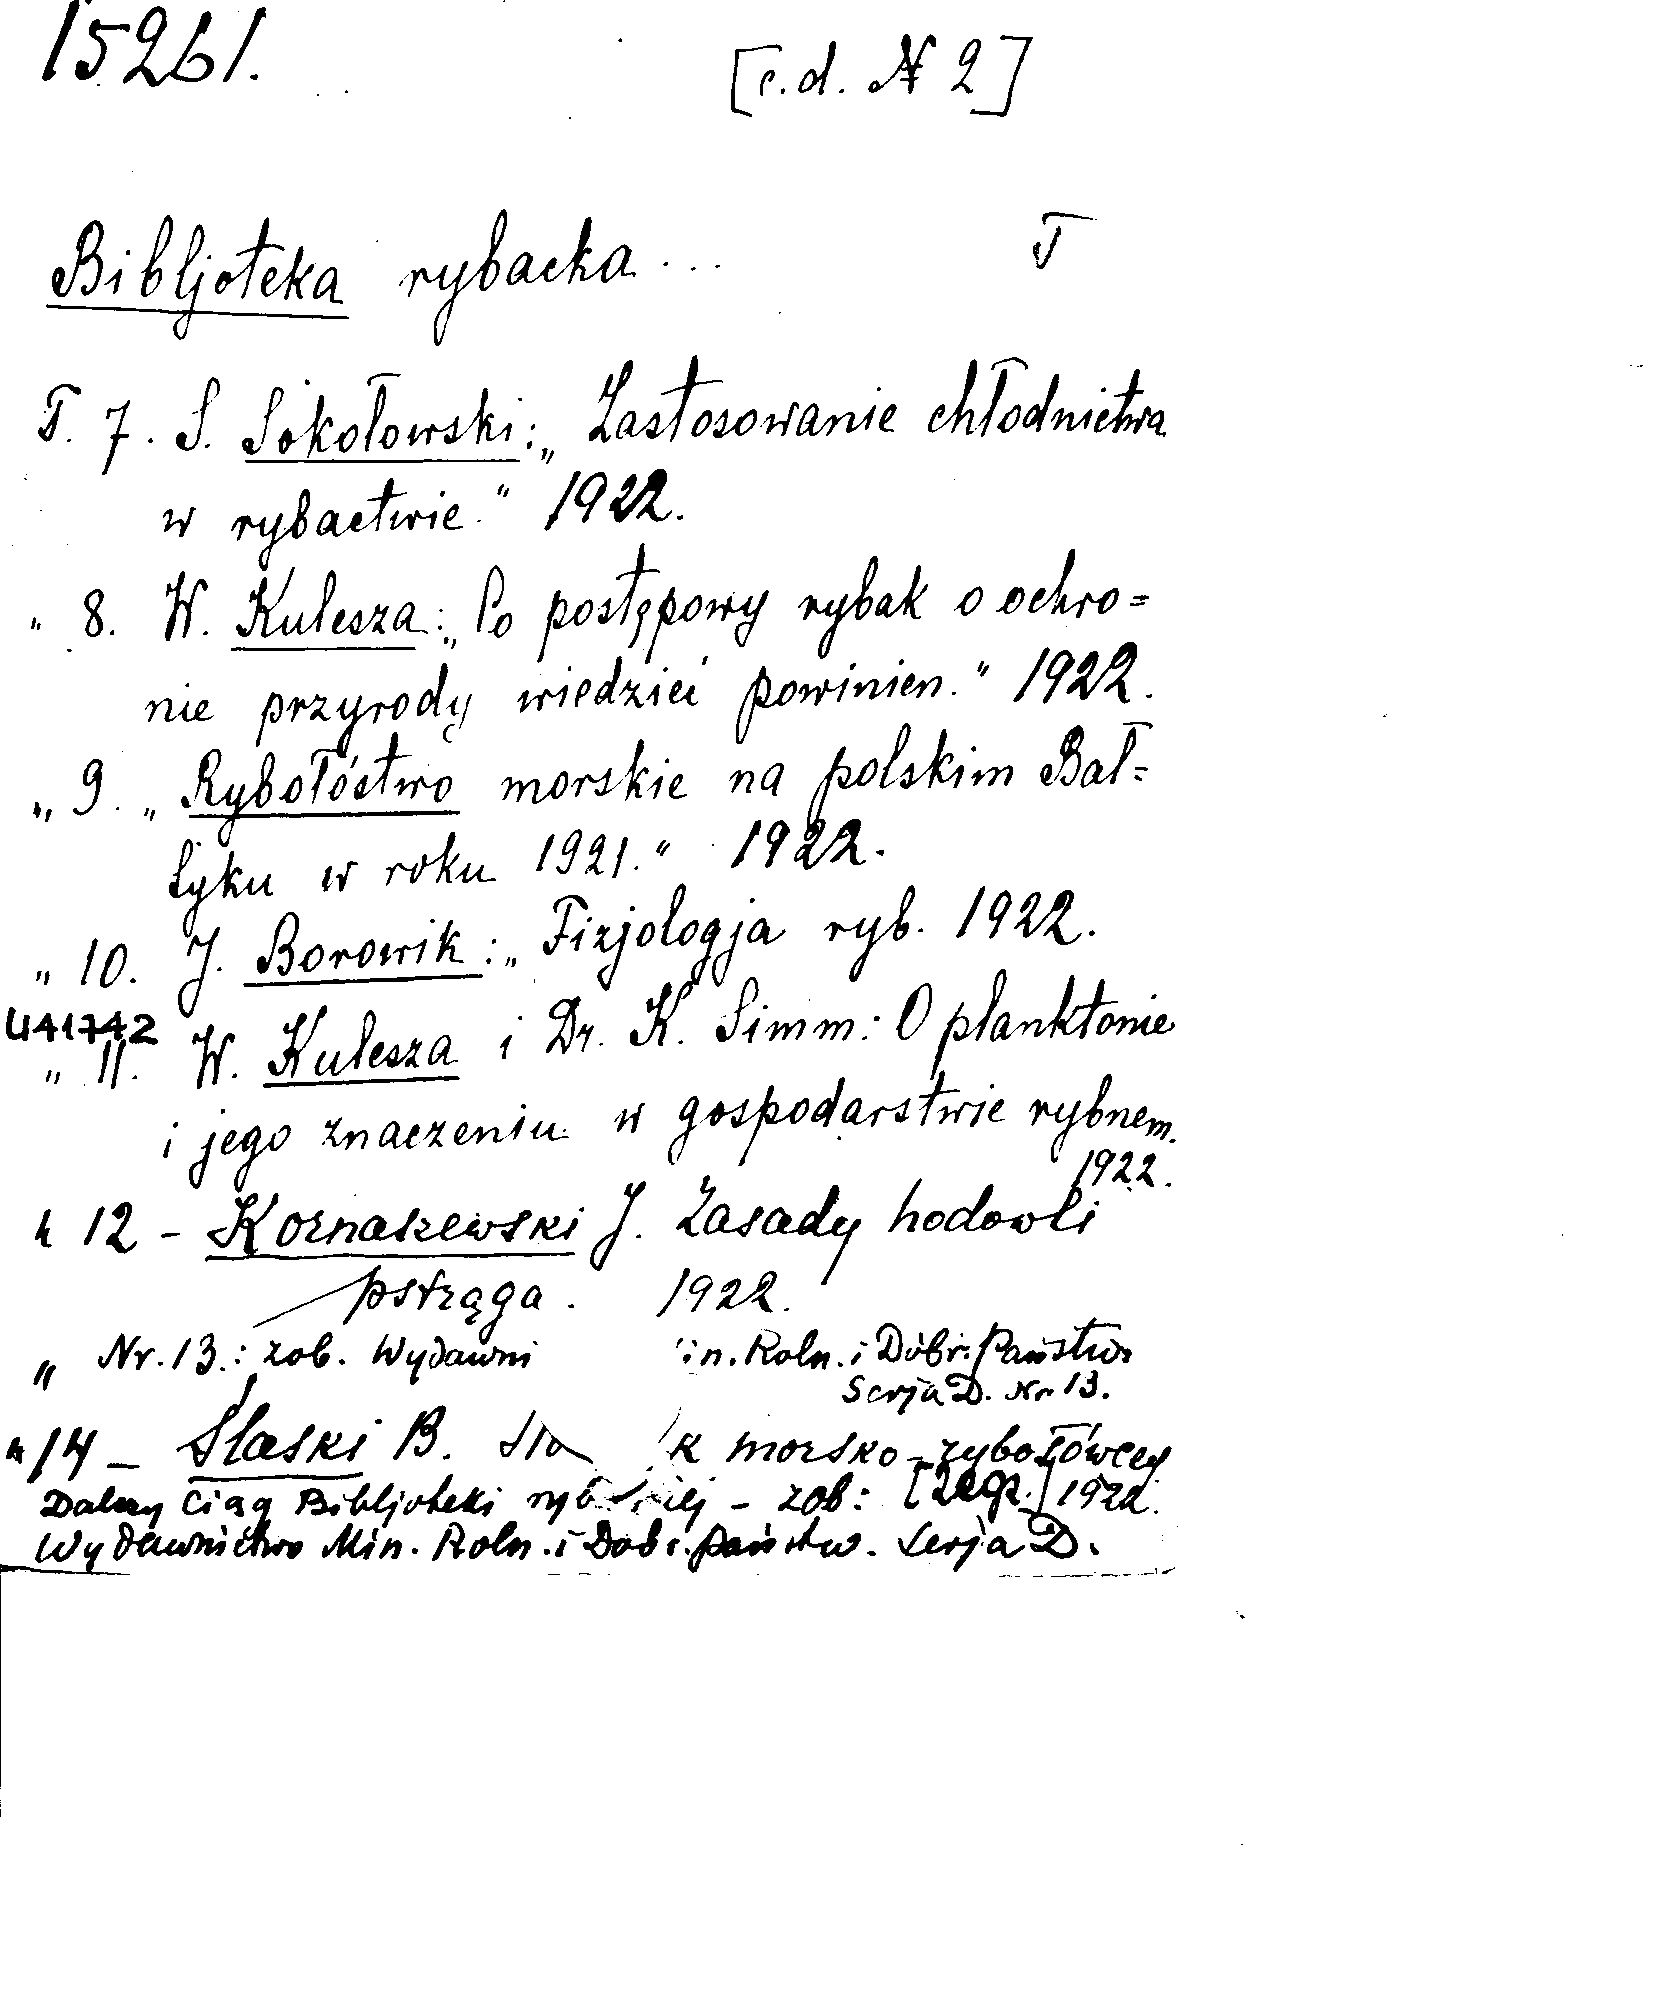 15261.
[c.d. № 2]
Bibljoteka rybacka... T
T. 7. S. Sokołowski: „Zastosowanie chłodnictwa
w rybactwie." 1922.
„ 8. W. Kulesza: „Co postępowy rybak o ochro=
nie przyrody wiedzieć powinien." 1922.
„ 9. „Rybołóstwo morskie na polskim Bał=
tyku w roku 1921." 1922.
„ 10. J. Borowik: „Fizjologja ryb. 1922.
U41742
„ 11. W. Kulesza i Dr. K. Simm: O planktonie
i jego znaczeniu w gospodarstwie rybnem.
1922.
„ 12 - Kornaszewski J. Zasady hodowli
pstrąga. 1922.
„ Nr. 13.: zob. Wydawni in. Roln. i Dóbr. Państw
Serja D. Nr 13.
„ 14 - Slaski B. Sło k morsko-rybołówczy
Dalszy ciąg Bibljoteki ryb iej - zob: 1922.
Wydawnictwo Min. Roln. i Dóbr. Państw. Serja D.